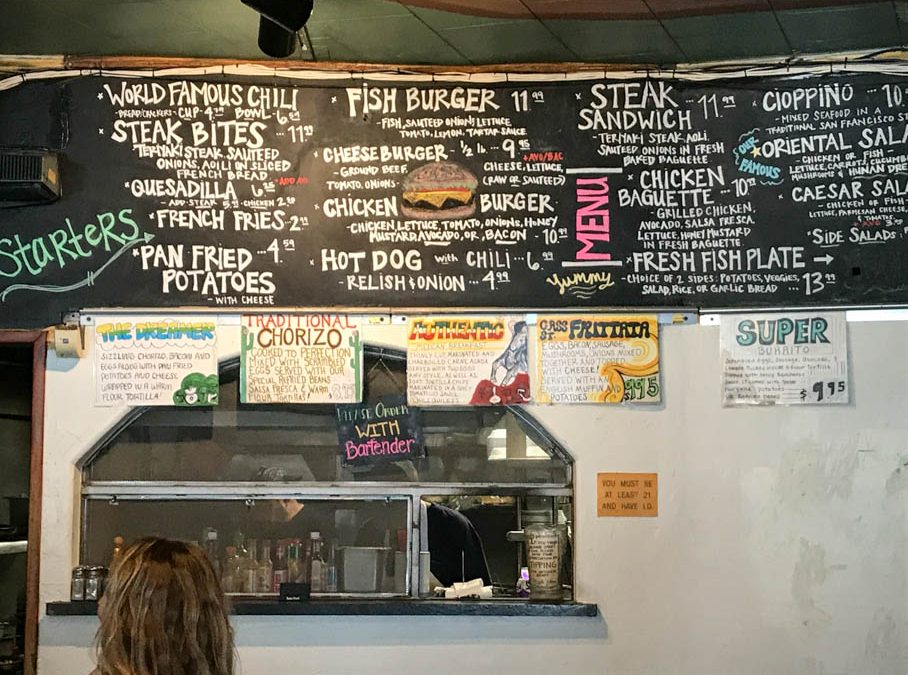 Starters
*WORLD FAMOUS CHILI
-BREAD/CRACKERS- CUP-4.99 BOWL-6
*STEAK BITES
TERIYAKI STEAK, SAUTEED
ONIONS, AOLI ON SLICED
FRENCH BREAD
*QUESADILLA
-ADD STEAK CHICKEN
*FRENCH FRIES-2.99
*PAN FRIED ...4.59
POTATOES
-WITH CHEESE
*FISH BURGER 11.99
-FISH, SAUTEED ONIONS, LETTUCE
TOMATO, LEMON, TARTAR SAUCE
*CHEESEBURGER 1/2 lb. 9.95
+AVO/BAC
-GROUND BEEF, CHEESE, LETTUCE,
TOMATO, ONIONS- (RAW OR SAUTEED)
*CHICKEN BURGER
-CHICKEN, LETTUCE, TOMATO, ONIONS, HONEY
MUSTARD, AVOCADO, OR, BACON - 10.99
*HOT DOG WITH CHILI ..6.99
RELISH & ONION ...4.99
MENU
yummy
*STEAK
SANDWICH ..11.99
-TERIYAKI STEAK, AOLI,
SAUTEED ONIONS IN FRESH
BAKED BAGUETTE
*CHICKEN
BAGUETTE ...10
-GRILLED CHICKEN,
AVOCADO, SALSA FRESCA,
LETTUCE, HONEY MUSTARD
IN FRESH BAGUETTE
*FRESH FISH PLATE →
-CHOICE OF 2 SIDES: POTATOES, VEGGIES,
SALAD, RICE, OR GARLIC BREAD ...13.99
*CIOPPINO ..10
-MIXED SEAFOOD IN A
TRADITIONAL SAN FRANCISCO
OUR
FAMOUS
*ORIENTAL SALA
-CHICKEN OR FISH-
LETTUCE, CARROTS, CUCUMBE
MUSHROOMS &
CAESAR SALA
-CHICKEN OR FISH-
LETTUCE, PARMESAN CHEESE,
& TOMATOES
*SIDE SALADS
THE DREAMER
SIZZLING CHORIZO, BACON AND
EGGS ALONG WITH PAN FRIED
POTATOES AND CHEESE
WRAPPED IN A WARM
FLOUR TORTILLA!
TRADITIONAL
CHORIZO
COOKED TO PERFECTION
MIXED WITH SCRAMBLED
EGGS SERVED WITH OUR
SPECIAL REFRIED BEANS
SALSA FRESCA & WARM
FLOUR TORTILLAS!
AUTHENTIC
THINLY CUT MARINATED AND
CHARBROILED CARNE ASADA
SERVED WITH TWO EGGS
ANY STYLE, AS WELL AS
CASS ST. FRITTATA
EGGS, BACON, SAUSAGE,
MUSHROOMS, ONIONS MIXED
TOGETHER & TOPPED
WITH CHEESE!
SERVED WITH AN
ENGLISH MUFFIN AND
POTATOES
$9.95
SUPER
BURRITO
$9.95
PLEASE ORDER
WITH
Bartender
YOU MUST BE
AT LEAST 21
AND HAVE I.D.
TIPPING